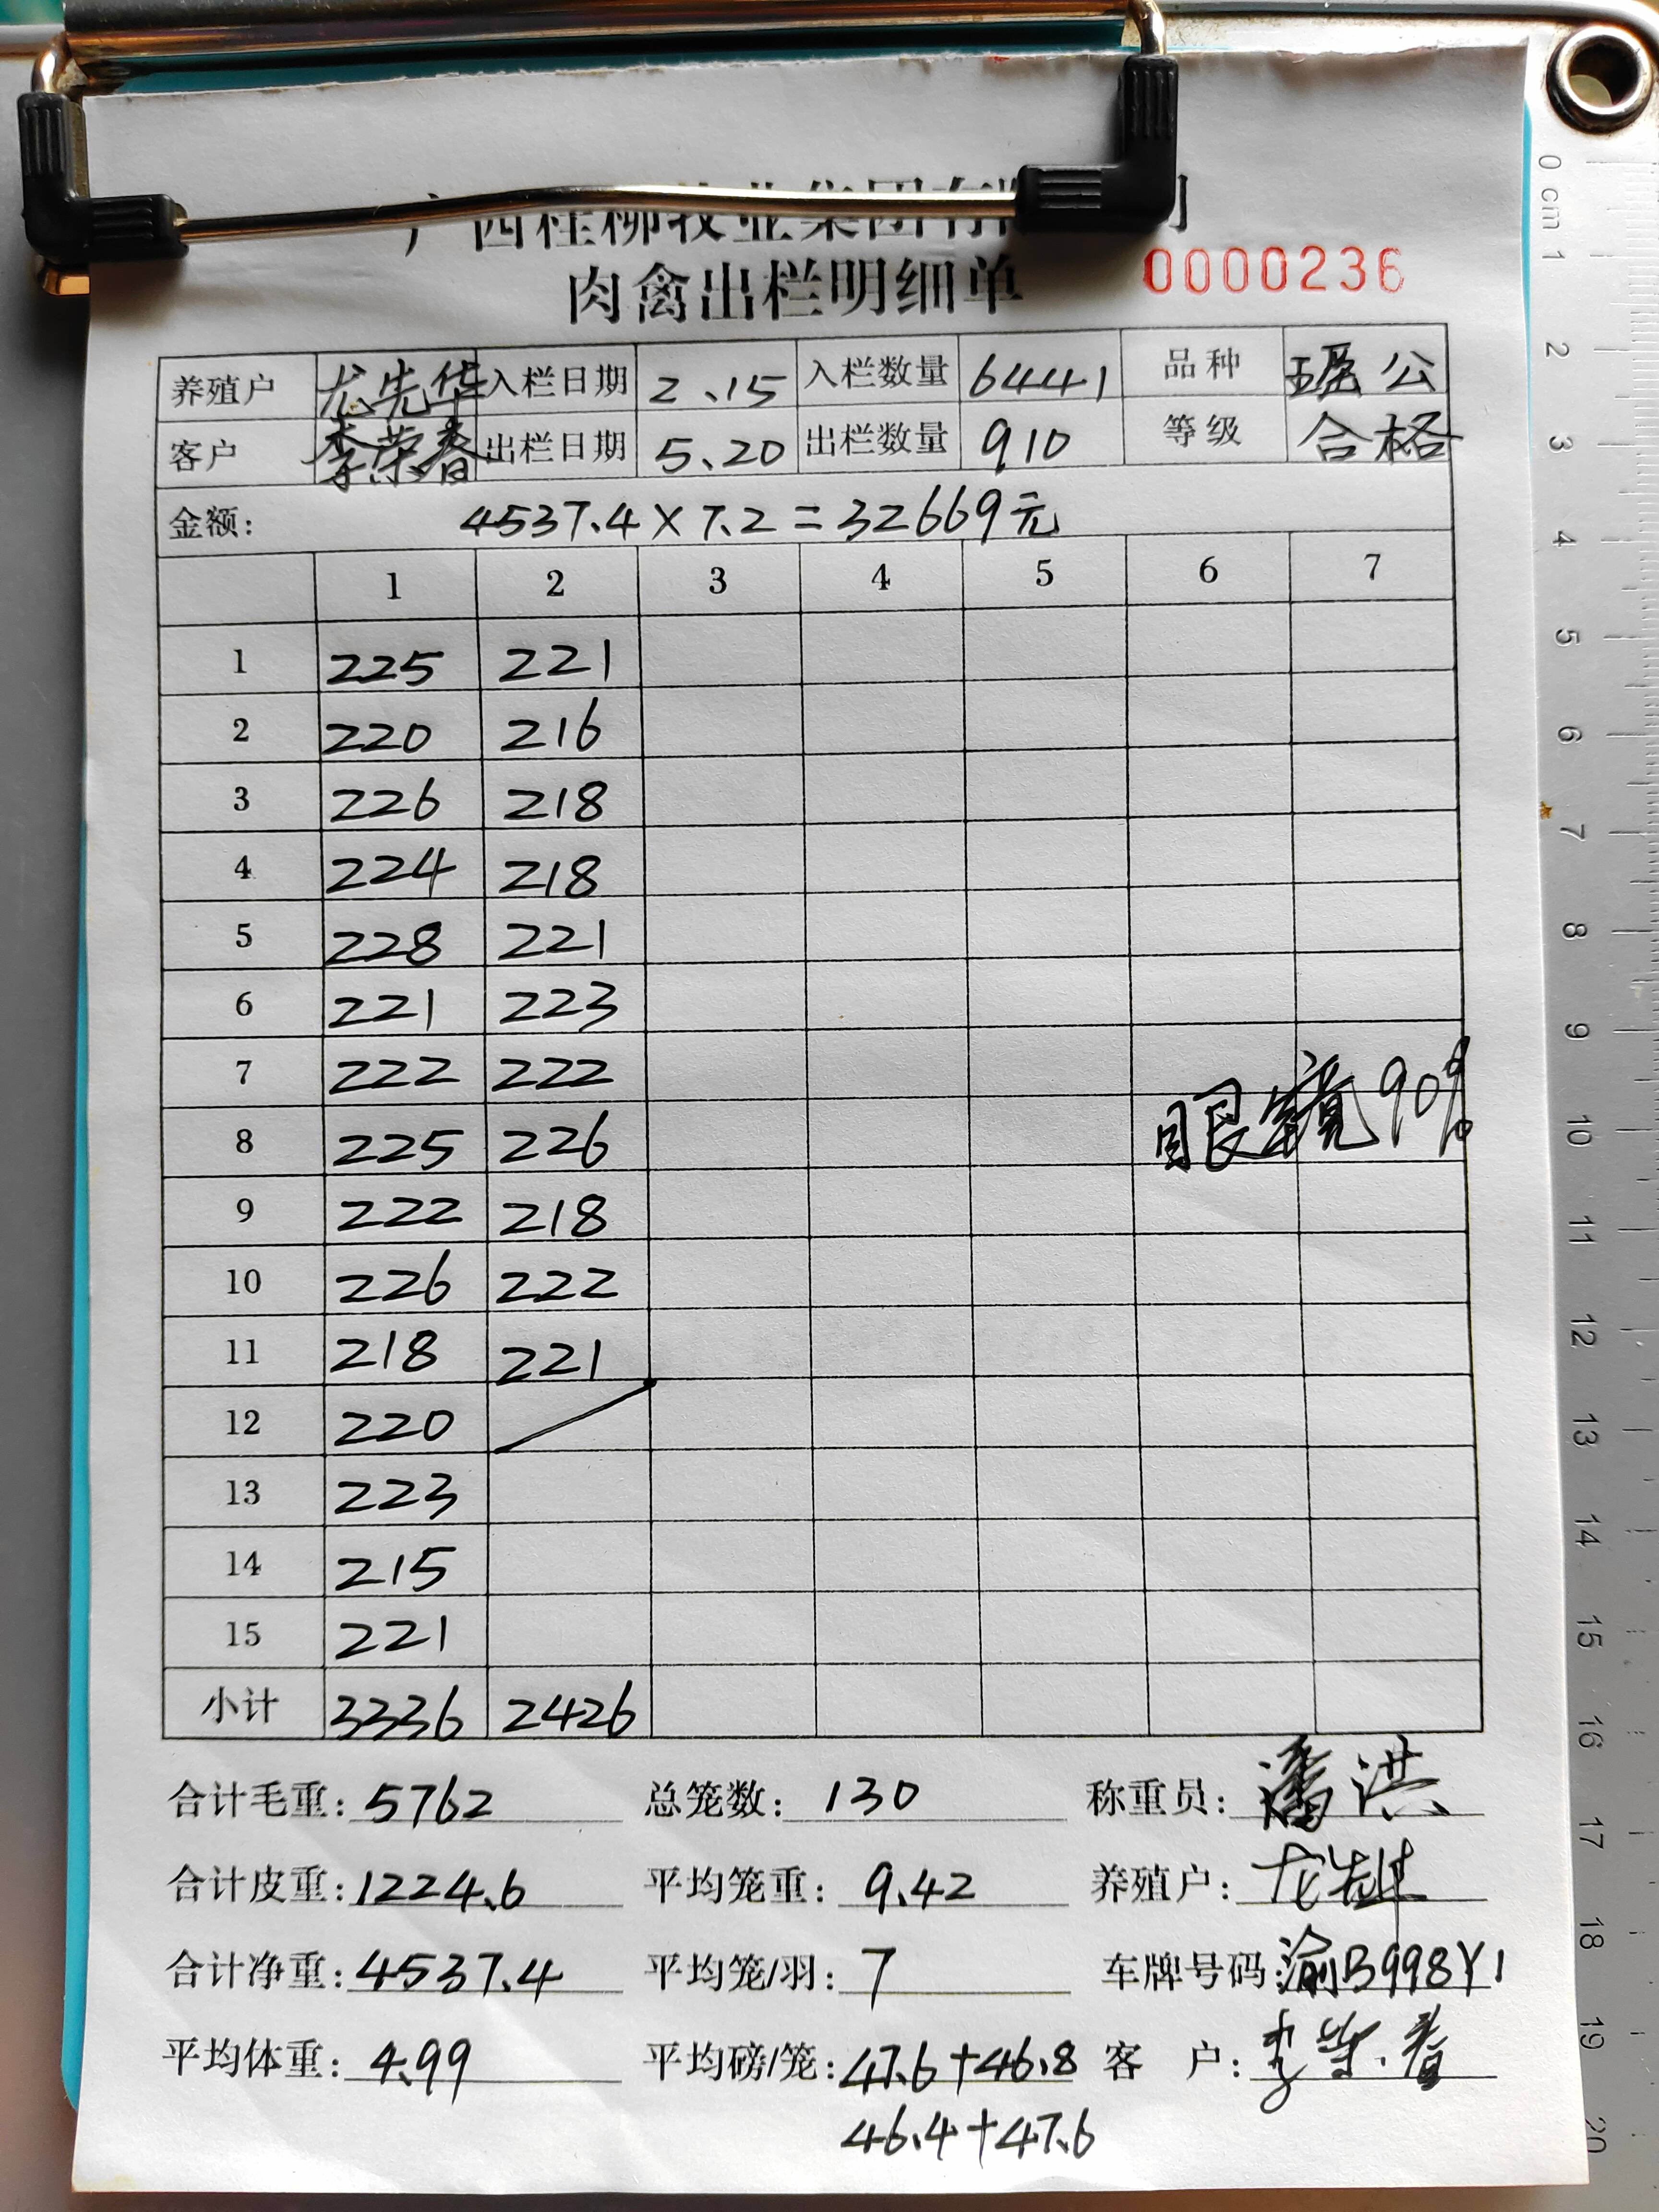 广西桂柳牧业集团有限公司
肉禽出栏明细单 0000236
养殖户 尤先华 入栏日期 2.15 入栏数量 6441 品种 瑶公
客户 李荣春 出栏日期 5.20 出栏数量 910 等级 合格
金额: 4537.4×7.2=32669元
1 2 3 4 5 6 7
1 225 221
2 220 216
3 226 218
4 224 218
5 228 221
6 221 223
7 222 222
眼镜90%
8 225 226
9 222 218
10 226 222
11 218 221
12 220
13 223
14 215
15 221
小计 3336 2426
合计毛重: 5762 总笼数: 130 称重员: 潘洪
合计皮重: 1224.6 平均笼重: 9.42 养殖户:
合计净重: 4537.4 平均笼/羽: 7 车牌号码: 渝B998Y1
平均体重: 4.99 平均磅/笼: 47.6+46.8 客 户: 李荣春
46.4+47.6
0 cm 1 2 3 4 5 6 7 8 9 10 11 12 13 14 15 16 17 18 19 20